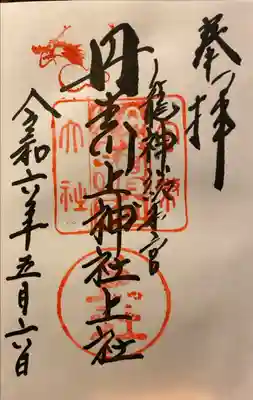 奉拝
龍神総本宮
丹生川上神社上社
令和六年五月六日